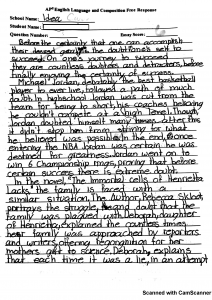 AP® English Language and Composition Free Response
School Name: Idea
Student Name:
Question Number:
Essay Score:
Before the certainty that one can accomplish
their desired goal, is the doubt one's self to
succeed. On one's journey to succeed
they are countless doubters and detractors, before
finally enjoying the certainty of success.
Michael Jordan, debatably the best basketball
player to ever live, followed a path of much
doubt to highschool. Jordan was cut from the
team for being to short, his coaches believing
he couldn't compete at a high level. Though
Jordan doubted himself many times after this
it didn't stop him from striving for what
he believed was possible. In the end, once
entering the NBA Jordan was certain he was
destined for greatness. Jordan went on to
win 6 Championship rings, proving that before
certain success there is extreme doubt.
In the novel, "The Immortal Cells of Henrietta
Lacks," the family is faced with a
similar situation. The Author, Rebecca Skloot,
portrays the struggle, and doubt that the
family was plagued with. Deborah, daughter
of Henrietta, explained the countless times
her family was approached by reporters
and writers, offering recognition for her
mothers gift to science. Deborah, explains
that each time it was a lie, in an attempt
Scanned with CamScanner